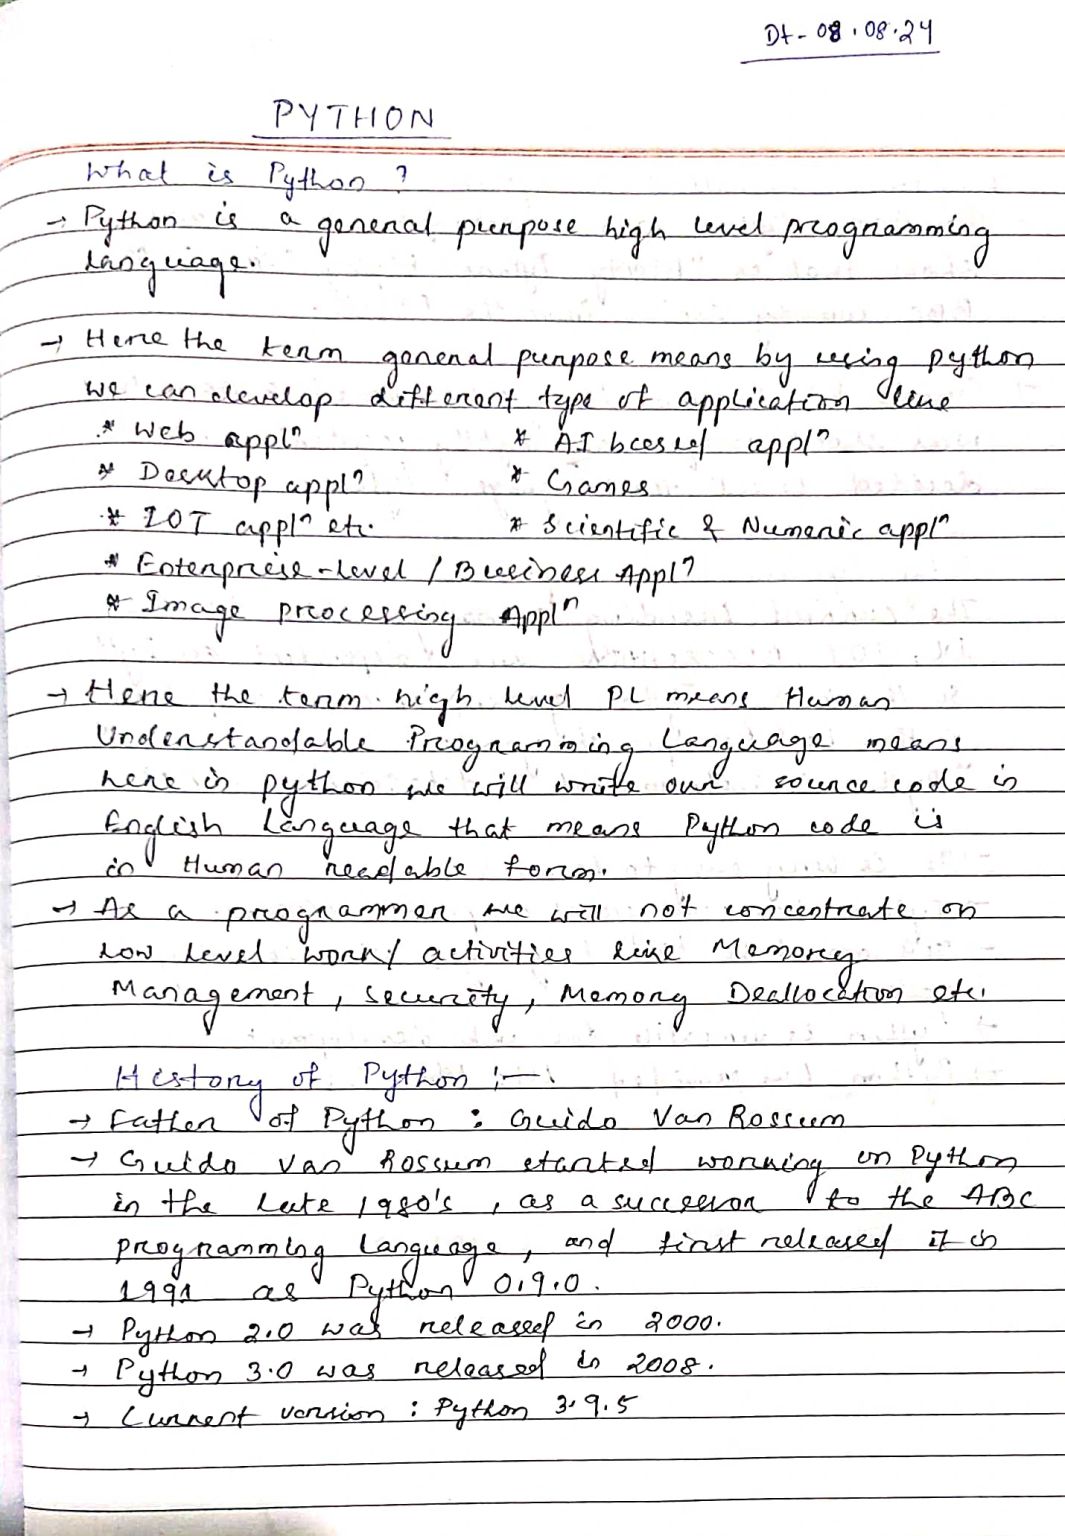 Dt - 08.08.24
PYTHON
What is Python ?
→ Python is a general purpose high level programming
language.
→ Here the term general purpose means by using python
we can develop different type of application like
* Web applⁿ * AI based applⁿ
* Desktop applⁿ * Games
* IOT applⁿ etc. * Scientific & Numeric applⁿ
* Enterprise-level / Business Applⁿ
* Image processing Applⁿ
→ Here the term high level PL means Human
Understandable Programming Language means
here in python we will write our source code in
English Language that means Python code is
in Human readable form.
→ As a programmer we will not concentrate on
low level work/ activities like Memory
Management, security, Memory Deallocation etc.
History of Python :-
→ Father of Python : Guido Van Rossum
→ Guido Van Rossum started working on Python
in the late 1980's , as a successor to the ABC
programming language, and first released it in
1991 as Python 0.9.0.
→ Python 2.0 was released in 2000.
→ Python 3.0 was released in 2008.
→ Current version : Python 3.9.5